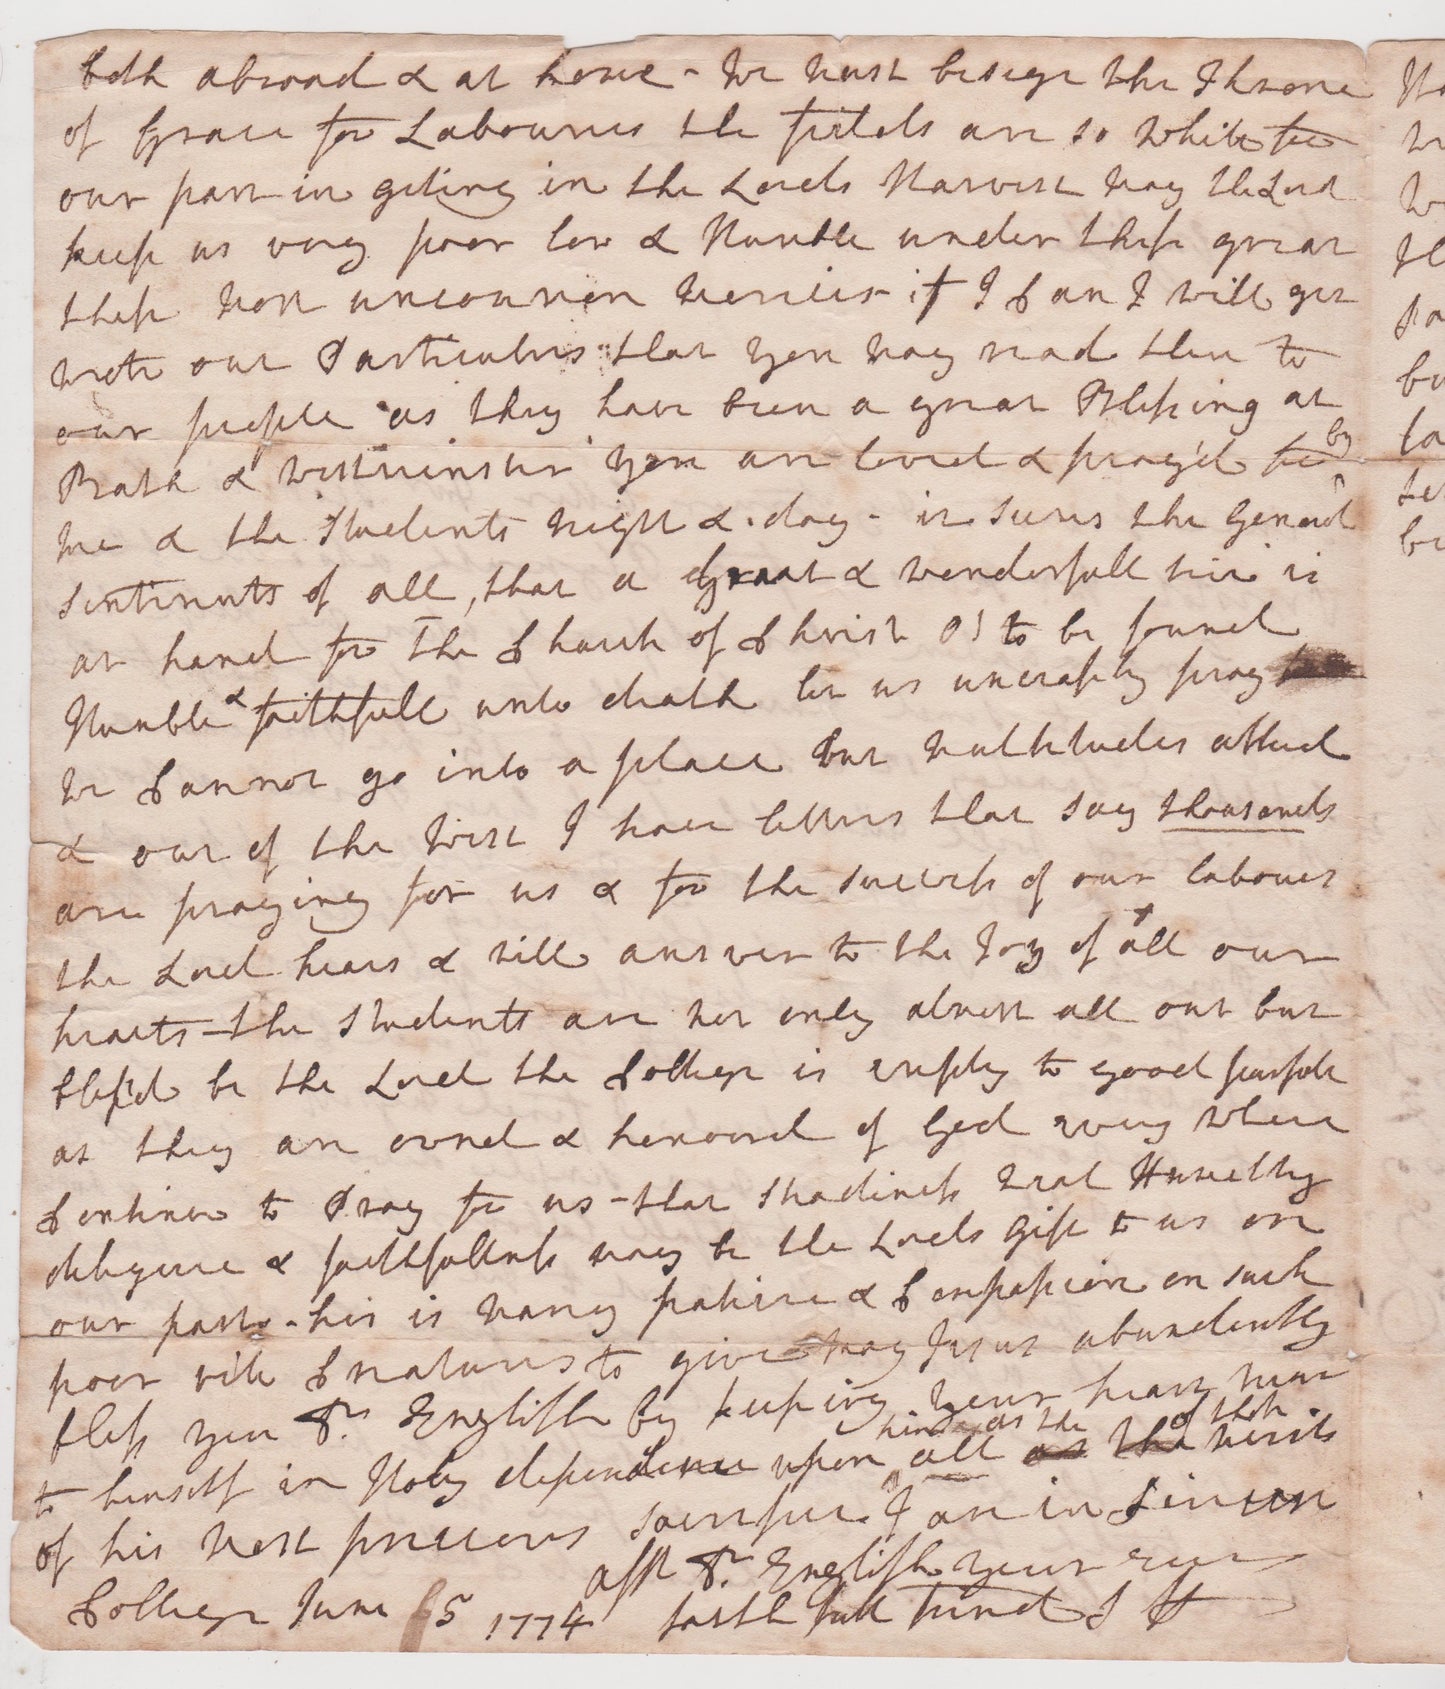 both abroad & at home - We must beseige the Throne
of Grace for Labourers the feilds are so white for
our part in geting in the Lords Harvest may the Lord
keep us very poor low & Humble under these great
these most uncommon Mercies - if I Can I will get
wrote our Particulars that you may read them to
our people as they have been a great Blessing at
Bath & westminster you are loved & pray'd for by
me & the Students night & day - it seems the General
sentiments of all, that a Great & wonderfull time is
at hand for The Church of Christ O! to be found
Humble & faithfull unto death let us unceassly pray
We Cannot go into a place but multitudes attend
& out of the West I have letters that say thousands
are praying for us & for the success of our labours
the Lord hears & will answer to the Joy of all our
hearts - the Students are not only almost all out but
bless'd be the Lord the College is empty to good purpose
as they are owned & honourd of God every where
Continue to Pray for us - that steadiness zeal Humility
deligence & faithfullness may be the Lords gift to us on
our part - his is many patience & Compassion on such
poor vile Creatures to give may Jesus abundently
bless you Dr. English by keeping your heart near
to himself in Holy dependence upon him as the all of the merits
of his most precious sacrifice. I am in Sincere
aff Dr. English your ever
College June 5 1774 faithfull friend S H
Ho
W
W
Th
Pa
bu
la
te
bu